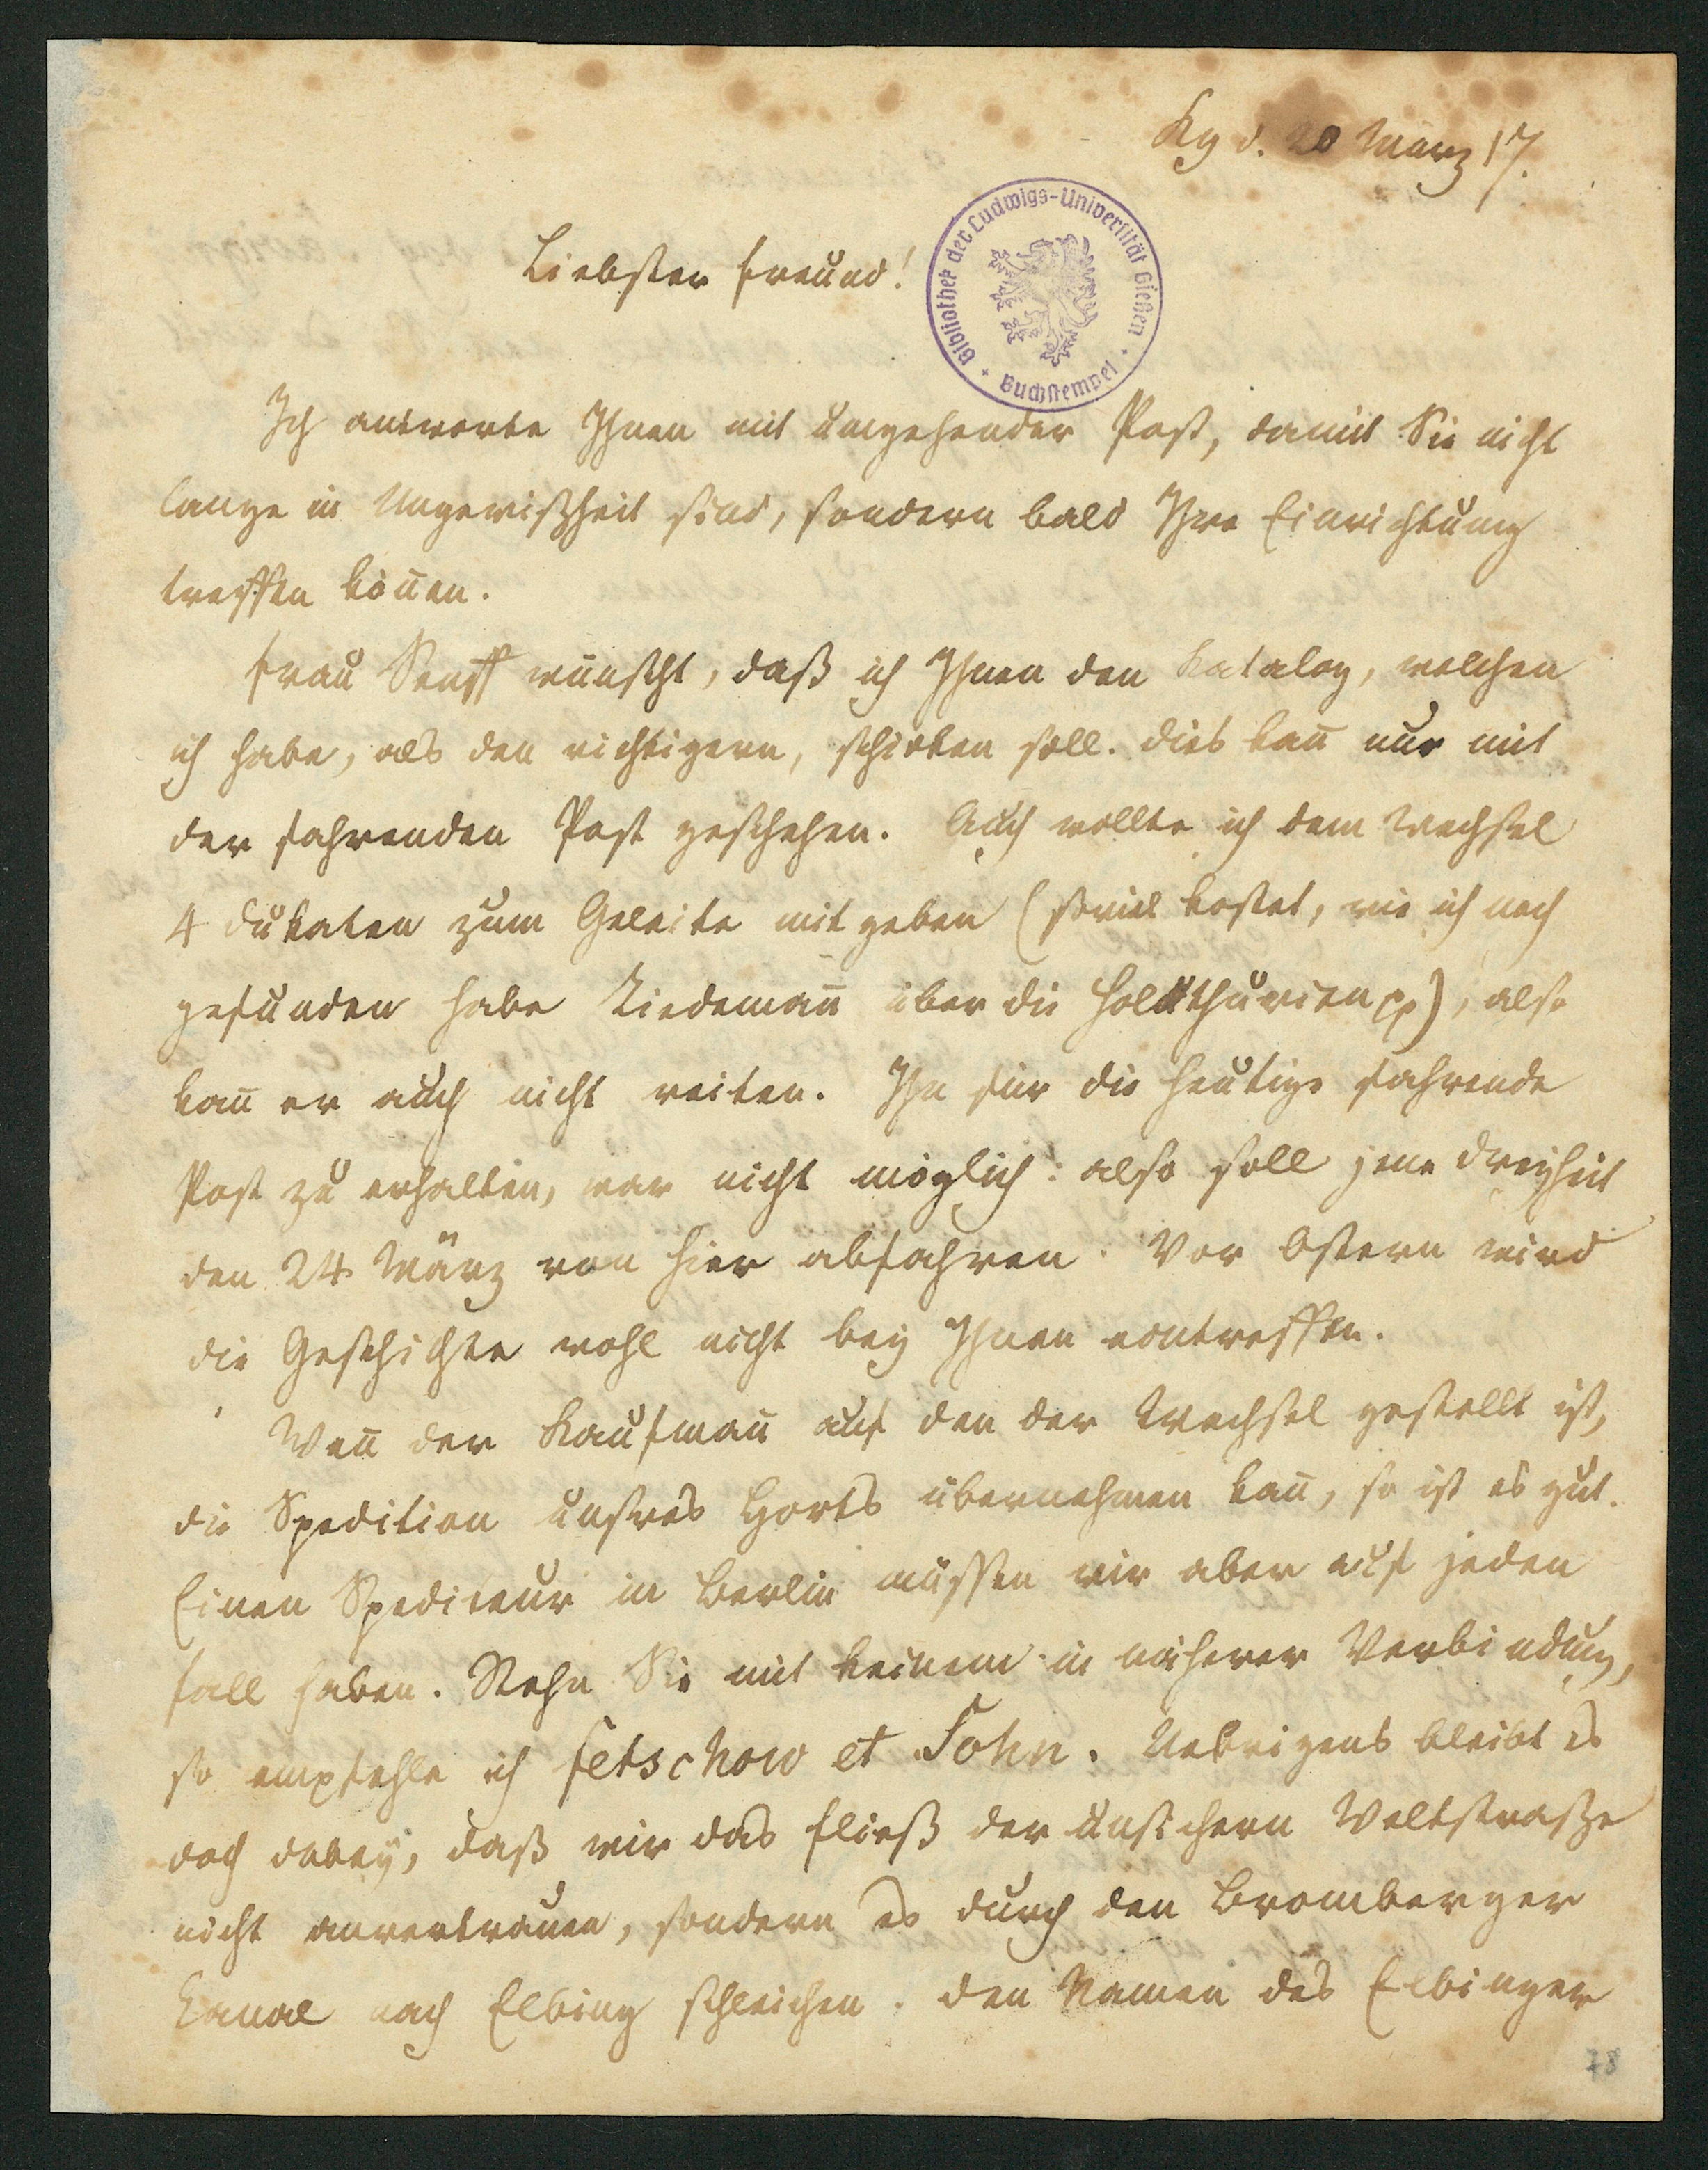 Kg d. 20 März 17.
Bibliothek der Ludwigs-Universität Gießen
Buchstempel
Liebster Freund!
Ich antworte Ihnen mit umgehender Post, damit Sie nicht
lange in Ungewißheit sind, sondern bald Ihre Einrichtung
treffen könen.
Frau Senff wünscht, daß ich Ihnen den Katalog, welchen
ich habe, als den richtigern, schicken soll. Dies kan nur mit
der fahrenden Post geschehen. Auch wollte ich dem Wechsel
4 Dukaten zum Geleite mit geben (soviel kostet, wie ich noch
gefunden habe Tiedeman über die Holothurien pp), also
kan er auch nicht reiten. Ihn für die heutige fahrende
Post zu erhalten, war nicht möglich: also soll jene Dreyheit
den 24 März von hier abfahren. Vor Ostern wird
die Geschichte wohl nicht bey Ihnen eintreffen.
Wen der Kaufman auf den der Wechsel gestellt ist,
die Spedition unsres Horts übernehmen kan, so ist es gut.
Einen Spediteur in Berlin müssen wir aber auf jeden
Fall haben. Stehn Sie mit keinem in näherer Verbindung,
so empfehle ich Fetschow et Sohn. Uebrigens bleibt es
doch dabey, daß wir das Fließ der unsichern Weltstraße
nicht anvertrauen, sondern es durch den Bromberger
Canal nach Elbing schleichen. Den Namen des Elbinger
78